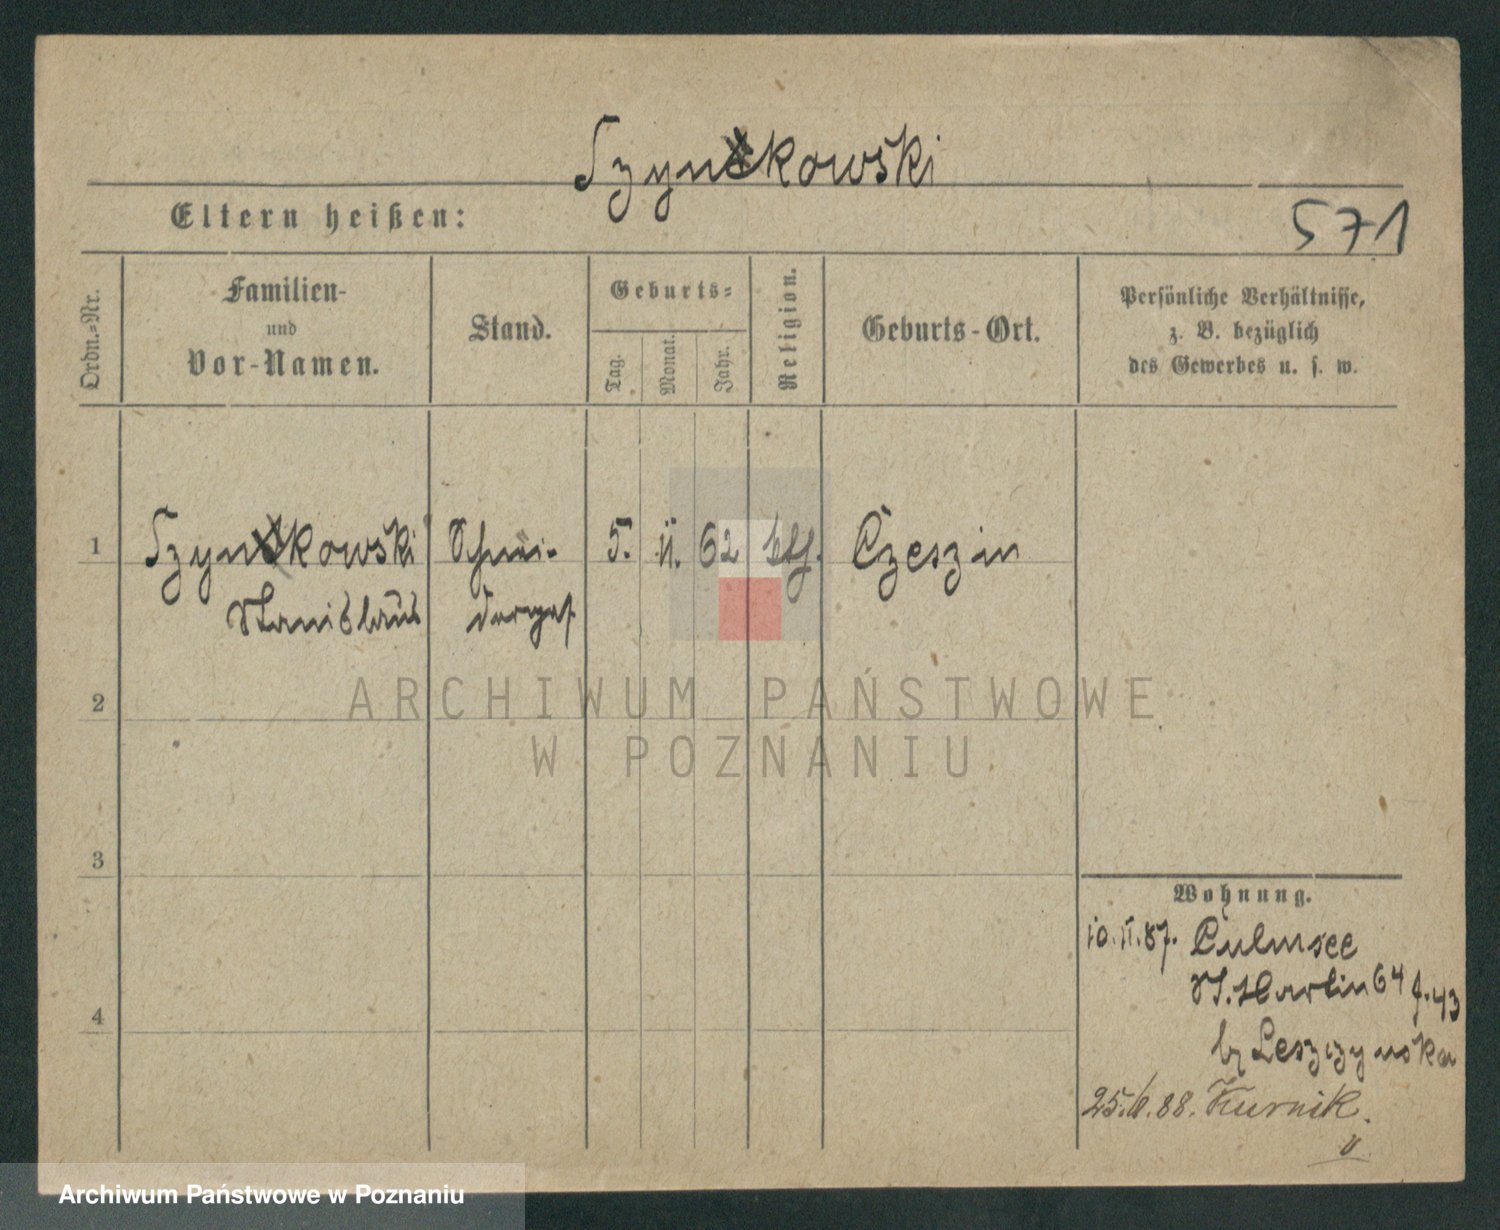 Szynkowski
Eltern heißen:
571
Ordn.-Nr.
Familien-
und
Vor-Namen.
Stand.
Geburts-
Tag.
Monat.
Jahr.
Religion.
Geburts-Ort.
Persönliche Verhältnisse,
z. B. bezüglich
des Gewerbes u. s. w.
1 Szynkowski Schnei- 5. 11. 62 kth. Czeszin
Stanislaus dergs.
2
ARCHIWUM PAŃSTWOWE
W POZNANIU
3
Wohnung.
10.11.87. Culmsee
St. Martin 64 f. 43
4
by Leszczynska
25. 88. Kurnik.
Archiwum Państwowe w Poznaniu